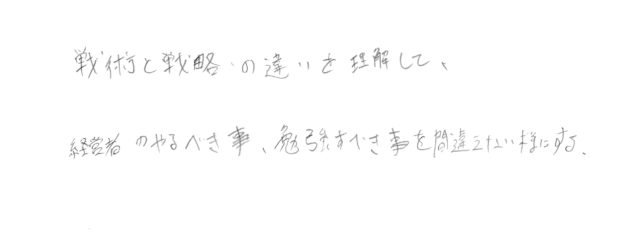 戦術と戦略の違いを理解して、
経営者のやるべき事、勉強すべき事を間違えない様にする。